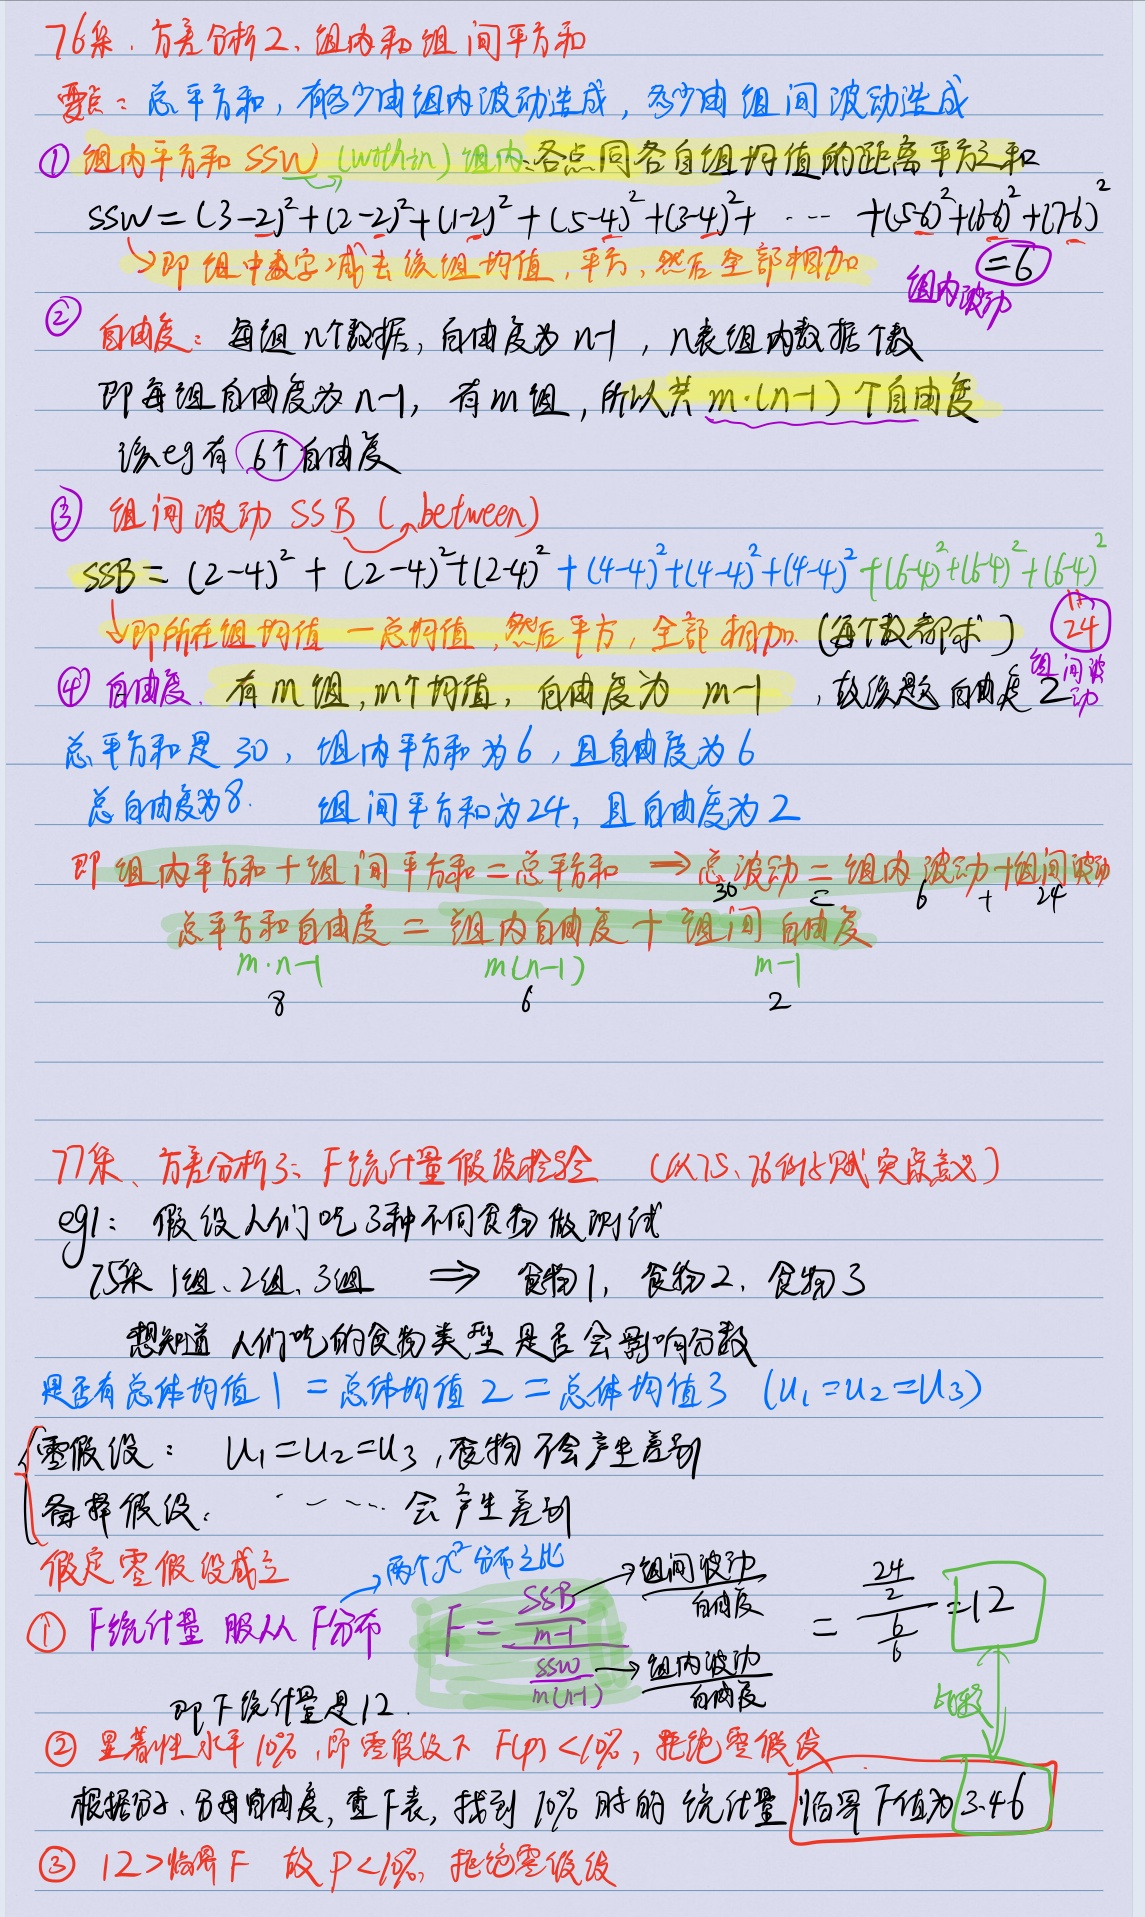 76集、方差分析2、组内和组间平方和
要点：总平方和，有多少由组内波动造成，多少由组间波动造成
① 组内平方和 SSW (within) 组内：各点同各自组均值的距离平方之和
SSW = (3-2)² + (2-2)² + (1-2)² + (5-4)² + (3-4)² + …… + (5-6)² + (6-6)² + (7-6)²
→即组中数字减去该组均值，平方，然后全部相加
=6
组内波动
② 自由度：每组n个数据，自由度为n-1，n表组内数据个数
即每组自由度为n-1，有m组，所以共m·(n-1)个自由度
该eg有6个自由度
③ 组间波动 SSB (between)
SSB = (2-4)² + (2-4)² + (2-4)² + (4-4)² + (4-4)² + (4-4)² + (6-4)² + (6-4)² + (6-4)²
→即所在组均值-总均值，然后平方，全部相加.(每个数都求)
=24
组间波动
④ 自由度. 有m组，m个均值，自由度为 m-1，故该题自由度2
总平方和是30，组内平方和为6，且自由度为6
总自由度为8. 组间平方和为24，且自由度为2
即组内平方和+组间平方和=总平方和 ⇒总波动=组内波动+组间波动
30 = 6 + 24
总平方和自由度 = 组内自由度 + 组间自由度
m·n-1 m(n-1) m-1
8 6 2
77集、方差分析3：F统计量假设检验 (从75、76例Lb赋实际意义)
eg1：假设人们吃3种不同食物做测试
75集 1组、2组、3组 ⇒ 食物1，食物2，食物3
想知道人们吃的食物类型是否会影响分数
是否有总体均值1=总体均值2=总体均值3 (u₁=u₂=u₃)
零假设：u₁=u₂=u₃，食物不会产生差别
备择假设：…… 会产生差别
假定零假设成立
→两个x²分布之比
① F统计量服从F分布 F = SSB/(m-1) / SSW/(m(n-1)) = 24/2 / 6/6 = 12
→组间波动/自由度
→组内波动/自由度
即F统计量是12.
比较
② 显著性水平10%，即零假设下 F(p)<10%，拒绝零假设
根据分子、分母自由度，查F表，找到10%时的统计量 临界F值为3.46
③ 12>临界F 故P<10%，拒绝零假设